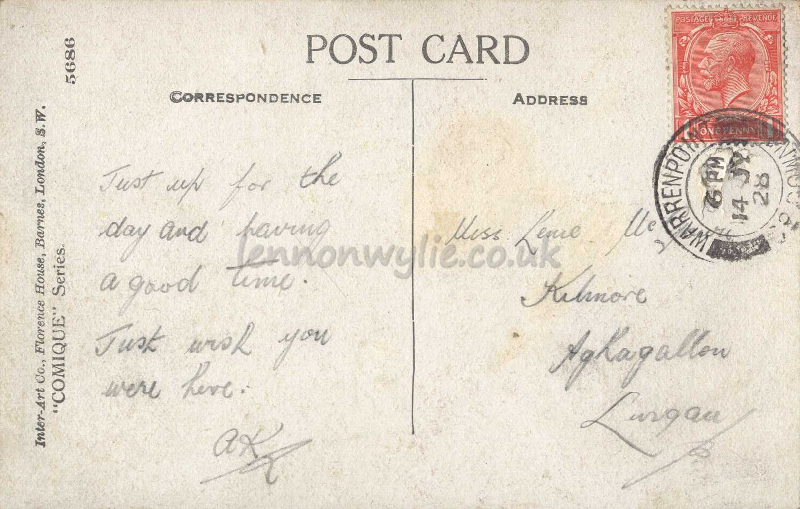 POST CARD
CORRESPONDENCE
ADDRESS
5686
Inter-Art Co., Florence House, Barnes, London, S.W.
"COMIQUE" Series.
POSTAGE REVENUE
ONE PENNY
WARRENPOINT
6 PM
14 JY
28
Just up for the
day and having
a good time.
Just wish you
were here.
AK
Miss
Kilmore
Aghagallon
Lurgan
lennonwylie.co.uk